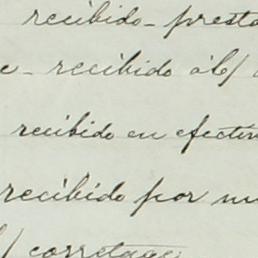 recibido - presta
e - recibido á b/
recibido en efectiv
recibido por m
/ corretage